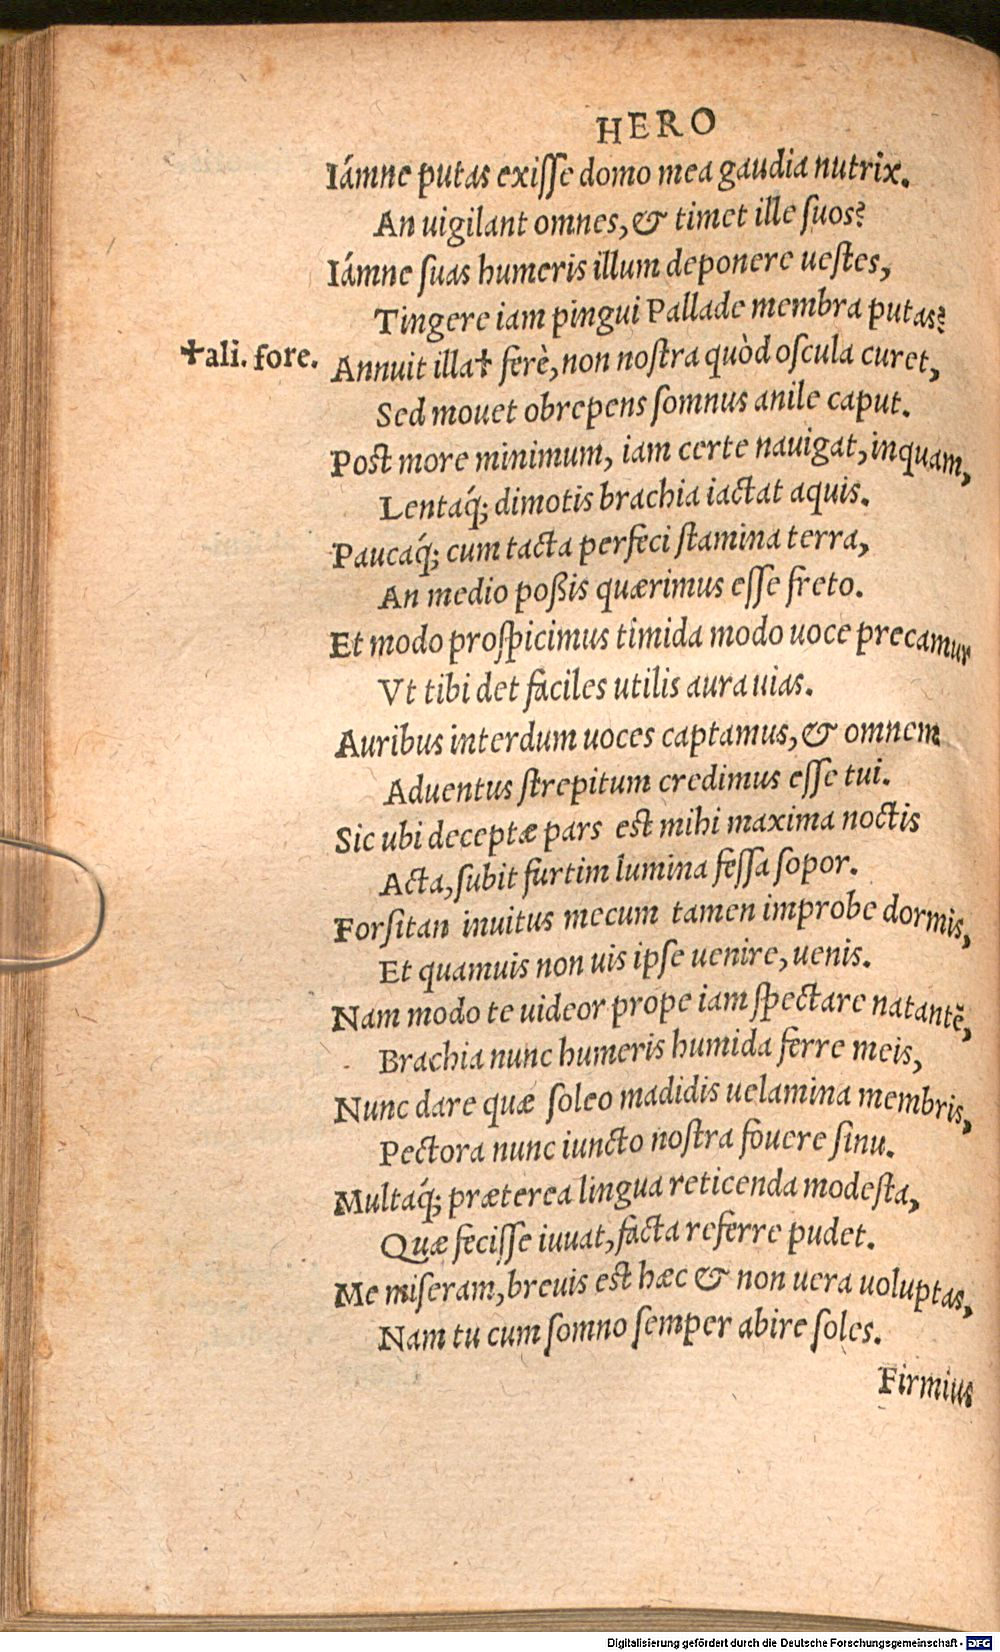 HERO
Iámne putas exisse domo mea gaudia nutrix.
An uigilant omnes, & timet ille suos?
Iámne suas humeris illum deponere uestes,
Tingere iam pingui Pallade membra putas?
✝ali. fore. Annuit illa✝ ferè, non nostra quòd oscula curet,
Sed mouet obrepens somnus anile caput.
Post more minimum, iam certe nauigat, inquam,
Lentaq́; dimotis brachia iactat aquis.
Paucaq́; cum tacta perfeci stamina terra,
An medio poßis quærimus esse freto.
Et modo prospicimus timida modo uoce precamur
Vt tibi det faciles utilis aura uias.
Auribus interdum uoces captamus, & omnem
Aduentus strepitum credimus esse tui.
Sic ubi deceptæ pars est mihi maxima noctis
Acta, subit furtim lumina fessa sopor.
Forsitan inuitus mecum tamen improbe dormis,
Et quamuis non uis ipse uenire, uenis.
Nam modo te uideor prope iam spectare natantẽ,
Brachia nunc humeris humida ferre meis,
Nunc dare quæ soleo madidis uelamina membris,
Pectora nunc iuncto nostra fouere sinu.
Multaq́; præterea lingua reticenda modesta,
Quæ fecisse iuuat, facta referre pudet.
Me miseram, breuis est hæc & non uera uoluptas,
Nam tu cum somno semper abire soles.
Firmius
Digitalisierung gefördert durch die Deutsche Forschungsgemeinschaft - DFG